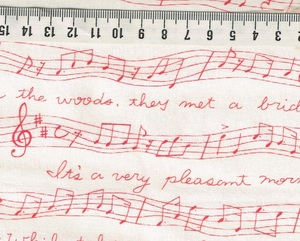 15 14 13 12 11 10 9 8 7 6 5 4 3 2
the woods. they met a
It's a very pleasant